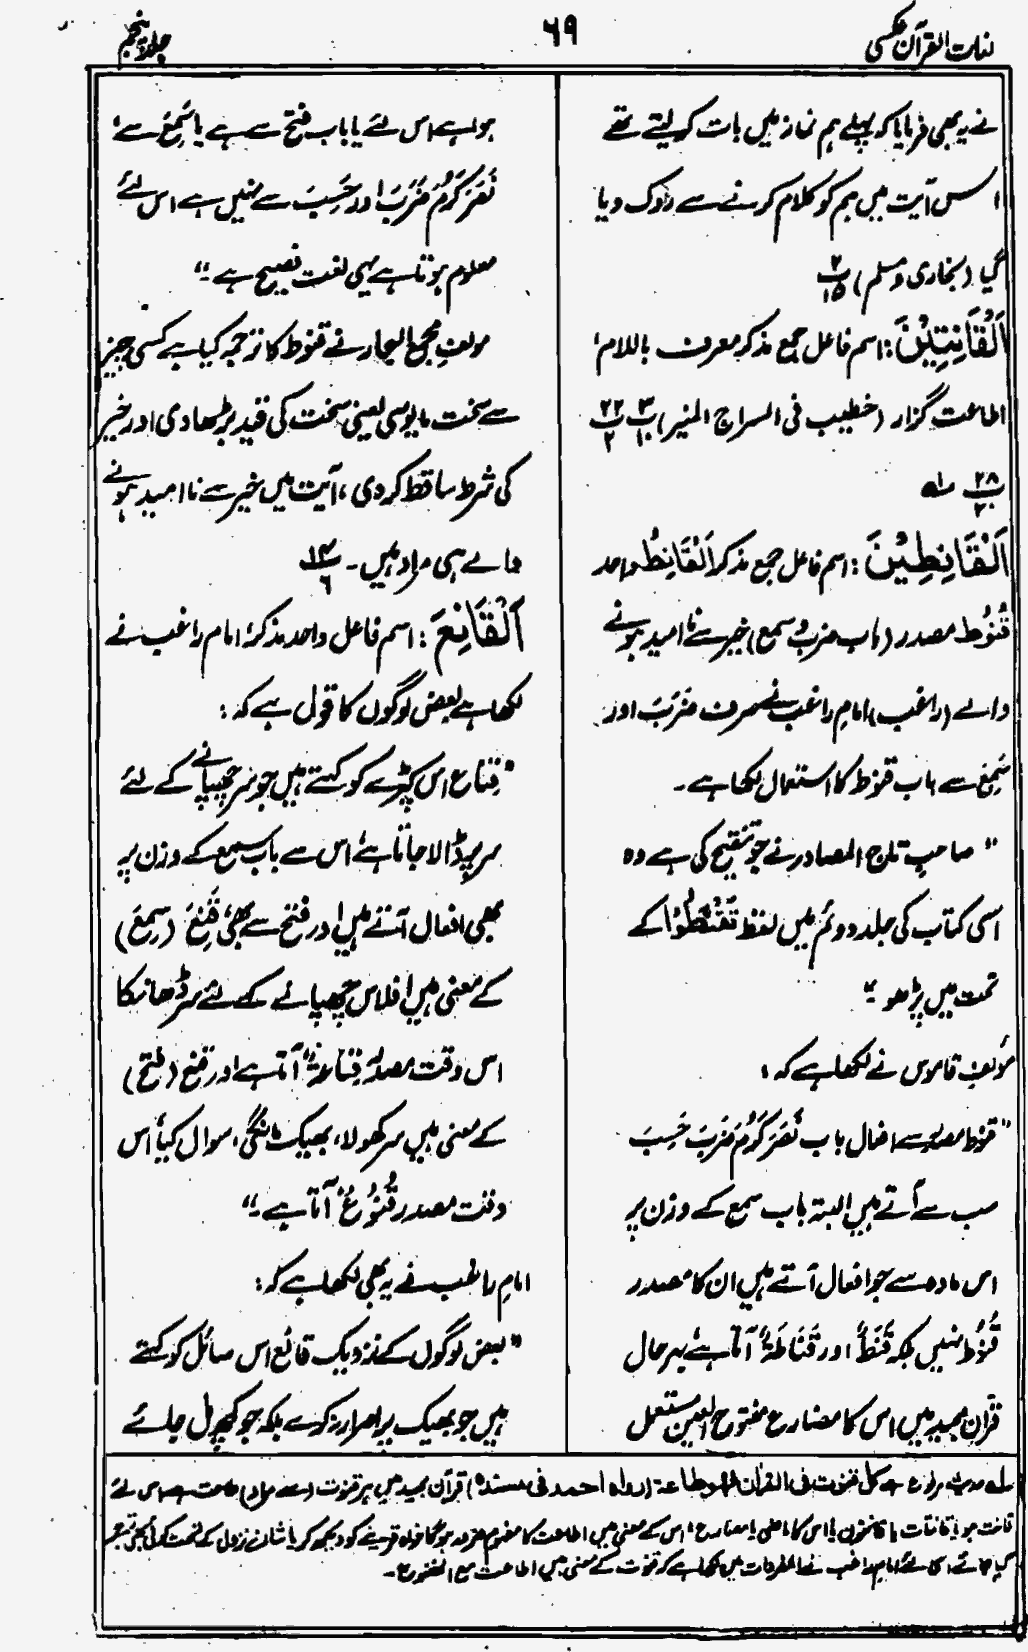 لغات القرآن عکسی
۶۹
جلد پنجم
نے یہ بھی فرمایا کہ پہلے ہم نماز میں بات کر لیتے تھے
اس آیت میں ہم کو کلام کرنے سے روک دیا
گیا (بخاری و مسلم) ۲/۱۵
اَلْقَانِتِیْنَ: اسم فاعل جمع مذکر معرف باللام،
اطاعت گزار (خطیب فی السراج المنیر) ۳/۱۰ ۲۲/۲
۲۸/۲۰
اَلْقَانِطِیْنَ: اسم فاعل جمع مذکر اَلْقَانِطُ واحد
قُنُوْط مصدر (باب ضرب و سمع) خیر سے نا امید ہونے
والے (راغب) امام راغب نے صرف ضَرَبَ اور
سَمِعَ سے باب قنوط کا استعمال لکھا ہے۔
"صاحبِ تاج المصادر نے جو تنقیح کی ہے وہ
اسی کتاب کی جلد دوئم میں لفظ تَقْنَطُوْا کے
تحت میں پڑھو۔"
مؤلفِ قاموس نے لکھا ہے کہ:
"قنوط مصدر سے افعال باب نَصَرَ کَرُمَ ضَرَبَ حَسِبَ
سب سے آتے ہیں البتہ باب سمع کے وزن پر
اس مادہ سے جو افعال آتے ہیں ان کا مصدر
قُنُوْط نہیں بلکہ قَنَطٌ اور قَنَاطَۃٌ آتا ہے بہر حال
قرآن مجید میں اس کا مضارع مفتوح العین مستعمل
ہوا ہے اس لئے یا باب فتح سے ہے یا سَمِعَ سے،
نَصَرَ کَرُمَ ضَرَبَ اور حَسِبَ سے نہیں ہے اس لئے
معلوم ہوتا ہے یہی لغت فصیح ہے۔"
مولفِ مجمع البحار نے قنوط کا ترجمہ کیا ہے کسی چیز
سے سخت مایوسی یعنی سخت کی قید بڑھا دی اور خیر
کی شرط ساقط کر دی، آیت میں خیر سے نا امید ہونے
والے ہی مراد ہیں۔ ۱۴/۶
اَلْقَانِعَ: اسم فاعل واحد مذکر، امام راغب نے
لکھا ہے بعض لوگوں کا قول ہے کہ:
"قِناع اس کپڑے کو کہتے ہیں جو سر چھپانے کے لئے
سر پر ڈالا جاتا ہے، اس سے باب سمع کے وزن پر
بھی افعال آتے ہیں اور فتح سے بھی، قَنِعَ (سَمِعَ)
کے معنی ہیں افلاس چھپانے کے لئے سر ڈھانکا
اس وقت مصدر قِنَاعَۃٌ آتا ہے اور قنع (فتح)
کے معنی ہیں سر کھولا، بھیک مانگی، سوال کیا، اس
وقت مصدر قُنُوْعٌ آتا ہے۔"
امامِ راغب نے یہ بھی لکھا ہے کہ:
"بعض لوگوں کے نزدیک قانع اس سائل کو کہتے
ہیں جو بھیک پر اصرار نہ کرے بلکہ جو کچھ مل جائے
کل قنوت فی القرآن فھو طاعۃ (رواہ احمد فی مسندہ) قرآن مجید میں ہر قنوت سے مراد طاعت ہے اس لئے
قانت ہو یا قانتات یا قانتون یا اس کا ماضی یا مضارع، اس کے معنی میں اطاعت کا مفہوم ضرور ہوگا خواہ قرینے کو دیکھ کر یا شان نزول کے تحت
امام راغب نے المفردات میں لکھا ہے کہ قنوت کے معنی ہیں اطاعت مع الخضوع۔